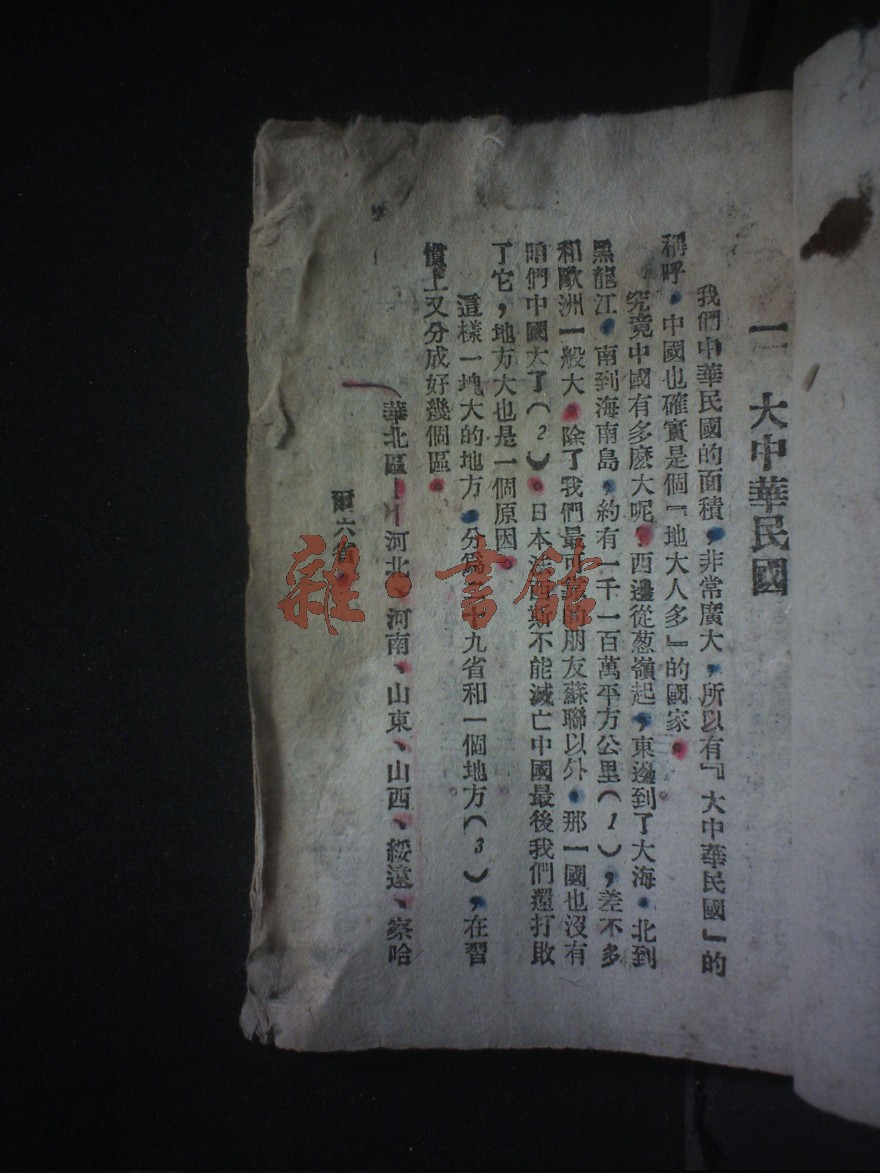 一 大中華民國
我們中華民國的面積,非常廣大,所以有『大中華民國』的
稱呼。中國也確實是個『地大人多』的國家。
究竟中國有多麽大呢,西邊從葱嶺起,東邊到了大海。北到
黑龍江,南到海南島,約有一千一百萬平方公里(1),差不多
和歐洲一般大。除了我們最可靠的朋友蘇聯以外。那一國也沒有
咱們中國大了(2)。日本法西斯不能滅亡中國最後我們還打敗
了它,地方大也是一個原因。
這樣一塊大的地方。分為 十九省和一個地方(3),在習
慣上又分成好幾個區。
華北區——河北、河南、山東、山西、綏遠、察哈
爾六省。
雜·書館